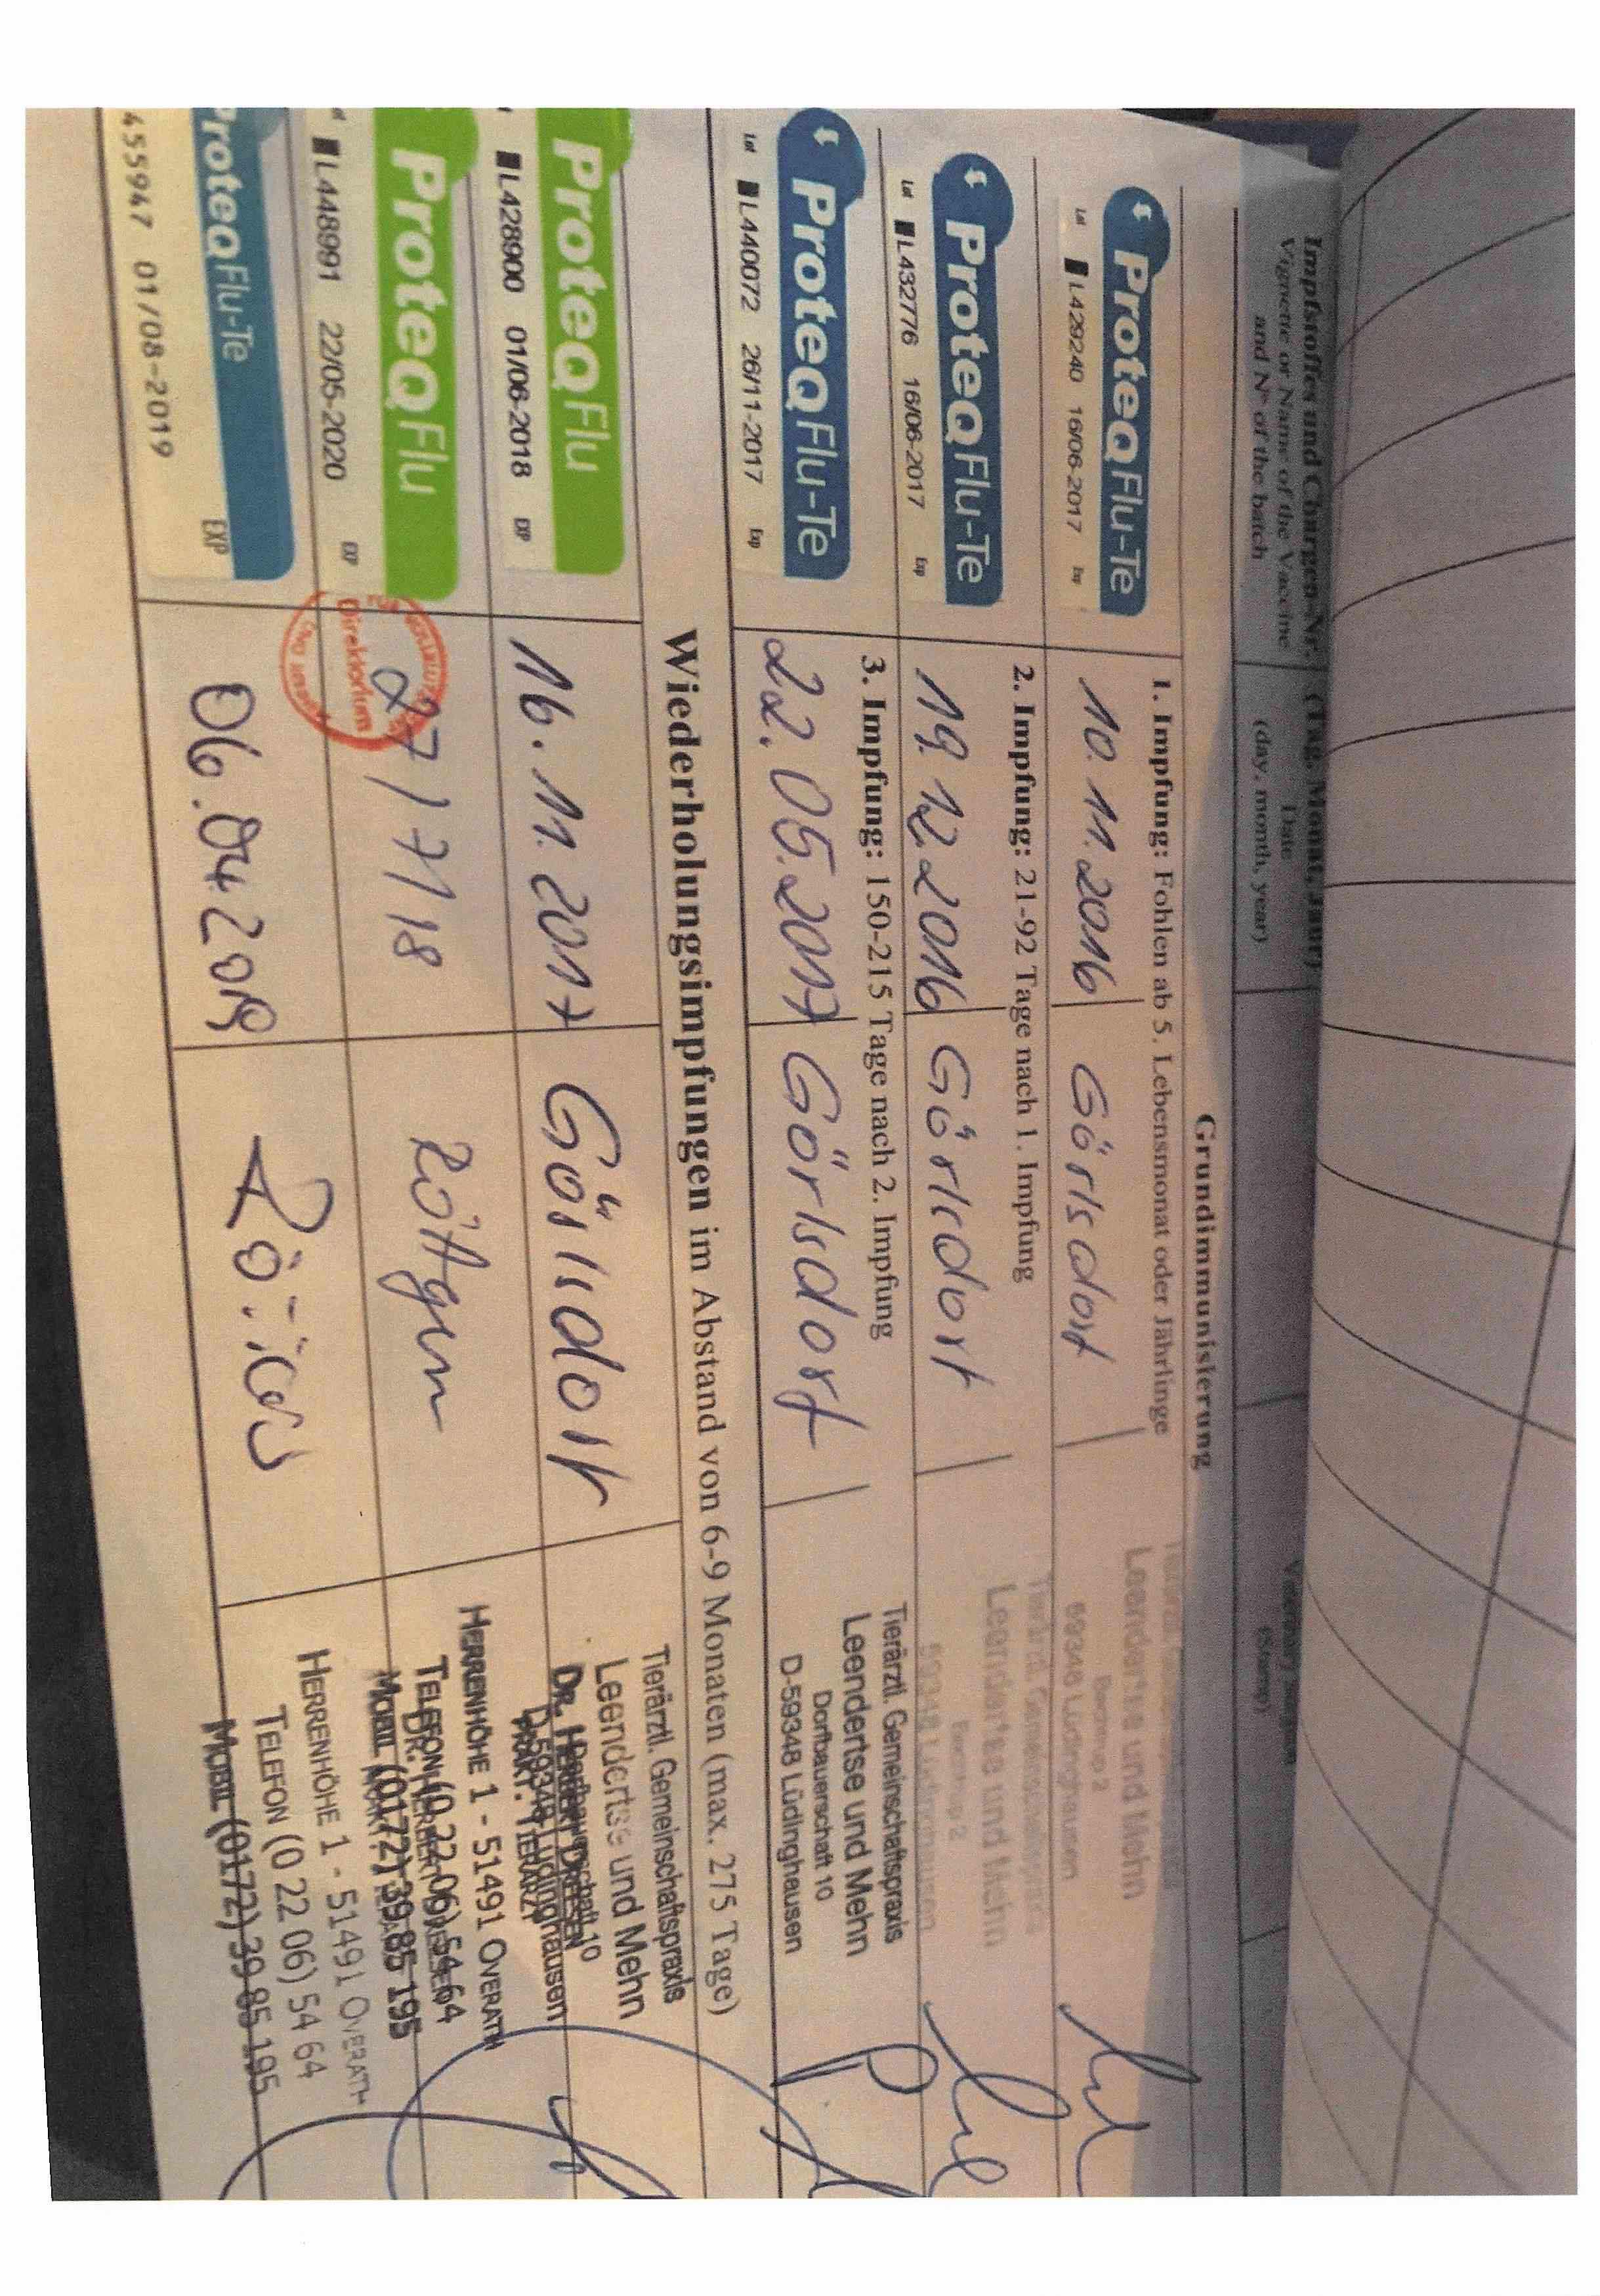 Impfstoffes und Chargen-Nr.
Vignette or Name of the Vaccine
and N° of the batch
(Tag, Monat, Jahr)
Date
(day, month, year)
(Stamp)
Grundimmunisierung
1. Impfung: Fohlen ab 5. Lebensmonat oder Jährlinge
ProteqFlu-Te
Lot L429240 16/06-2017 Exp
10.11.2016
Görlsdorf
Leendertse und Mehn
59348 Lüdinghausen
2. Impfung: 21-92 Tage nach 1. Impfung
ProteqFlu-Te
Lot L432776 16/06-2017 Exp
19.12.2016
Görlsdorf
Leendertse und Mehn
59348 Lüdinghausen
3. Impfung: 150-215 Tage nach 2. Impfung
ProteqFlu-Te
Lot L440072 26/11-2017 Exp
22.05.2017
Görlsdorf
Tierärztl. Gemeinschaftspraxis
Leendertse und Mehn
Dorfbauerschaft 10
D-59348 Lüdinghausen
Wiederholungsimpfungen im Abstand von 6-9 Monaten (max. 275 Tage)
ProteqFlu
L428900 01/06-2018 EXP
16.11.2017
Görlsdorf
Tierärztl. Gemeinschaftspraxis
Leendertse und Mehn
Dorfbauerschaft 10
D-59348 Lüdinghausen
ProteqFlu
L448991 22/05-2020 EXP
Direktorium
27/7/18
Röttgen
PRAKT. TIERARZT
HERRENHÖHE 1 - 51491 OVERATH
TELEFON (0 22 06) 54 64
MOBIL (0172) 39 85 195
ProteqFlu-Te
455967 01/08-2019
EXP
06.04.2019
HERRENHÖHE 1 - 51491 OVERATH
TELEFON (0 22 06) 54 64
MOBIL (0172) 39 85 195